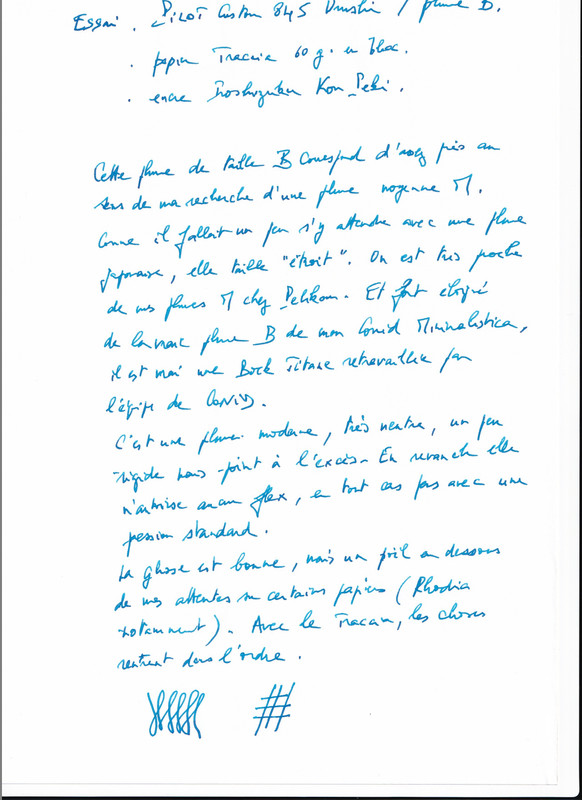 Essai . PILOT Custom 845 Urushi / plume B.
. papier Traccia 60 g. en bloc.
. encre Iroshizuku Kon_Peki.
Cette plume de taille B correspond d'assez près au
sens de ma recherche d'une plume moyenne M.
Comme il fallait un peu s'y attendre avec une plume
japonaise, elle taille "étroit". On est très proche
de mes plumes M chez Pelikan. Et fort éloigné
de la vraie plume B de mon Conid Minimalistica,
il est vrai une Bock Titane retravaillée par
l'équipe de CONID.
C'est une plume moderne, très neutre, un peu
rigide mais point à l'excès. En revanche elle
n'autorise aucun flex, en tout cas pas avec une
pression standard.
La glisse est bonne, mais un poil au dessous
de mes attentes sur certains papiers (Rhodia
notamment). Avec le Traccia, les choses
rentrent dans l'ordre.